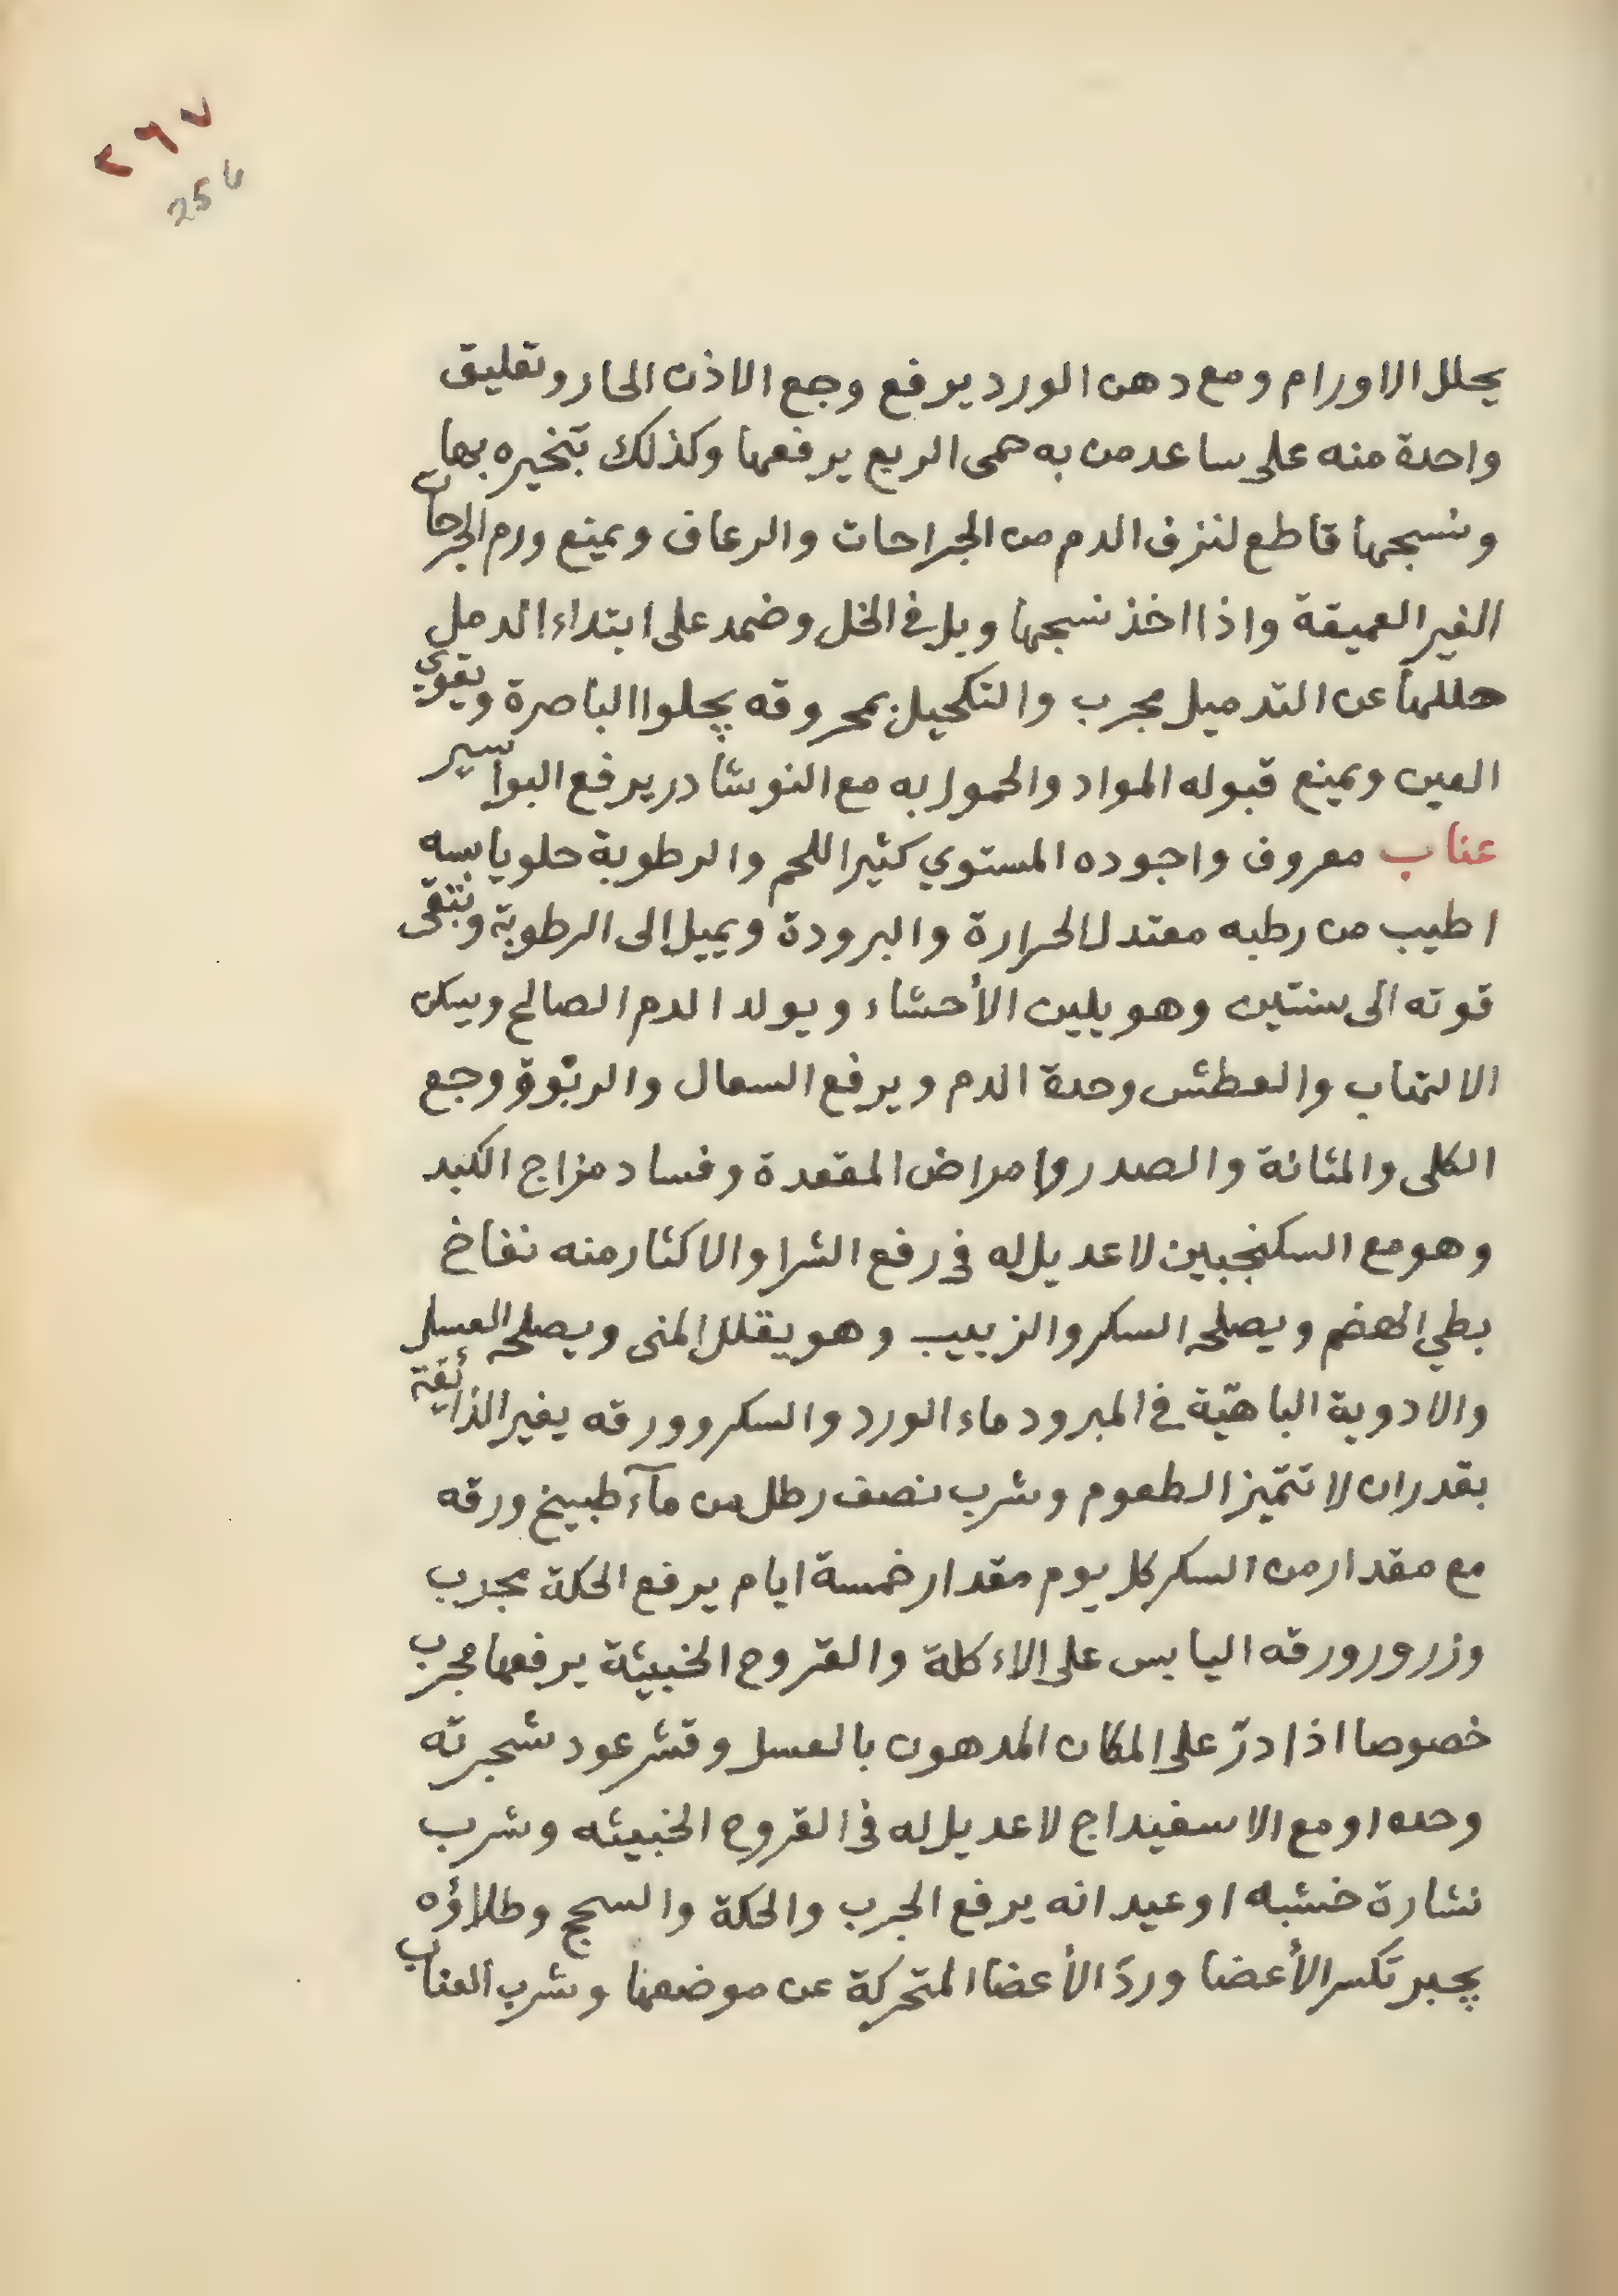 ٢٦٧
256
يحلل الاورام ومع دهن الورد يرفع وجع الاذن الحار وتعليق
واحدة منه على ساعد من به حمى الربع يرفعها وكذلك تبخيره بها
ونسجها قاطع لنزف الدم من الجراحات والرعاف ويمنع ورم الجراحات
الغير العميقة واذا اخذ نسجها وبل في الخل وضمد على ابتداء الدمل
حللها عن التدميل مجرب والتكحيل بمحروقه يجلوا الباصرة ويقوي
العين ويمنع قبوله المواد والحمول به مع النوشادر يرفع البواسير
عناب معروف واجوده المستوي كثير اللحم والرطوبة حلو يابسه
اطيب من رطبه معتدل الحرارة والبرودة ويميل الى الرطوبة وتبقى
قوته الى سنتين وهو يلين الأحشاء ويولد الدم الصالح ويسكن
الالتهاب والعطش وحدة الدم ويرفع السعال والربو ووجع
الكلى والمثانة والصدر وامراض المقعدة وفساد مزاج الكبد
وهو مع السكنجبين لا عديل له في رفع الشرا والاكثار منه نفاخ
بطي الهضم ويصلحه السكر والزبيب وهو يقلل المنى ويصلحه العسل
والادوية الباهيّة في المبرود ماء الورد والسكر وورقه يغير الذائقة
بقدر ان لا تتميّز الطعوم وشرب نصف رطل من مآء طبيخ ورقه
مع مقدار من السكر كل يوم مقدار خمسة ايام يرفع الحكة مجرب
وزرور ورقه اليابس على الاءكلة والقروح الخبيثة يرفعها مجرب
خصوصا اذا درّ على المكان المدهون بالعسل وقشر عود شجرته
وحده او مع الاسفيداج لا عديل له في القروح الخبيثه وشرب
نشارة خشبه او عيدانه يرفع الجرب والحكة والسحج وطلاؤه
يجبر تكسر الأعضا وردّ الأعضا المتحركة عن موضعها وشرب العناب